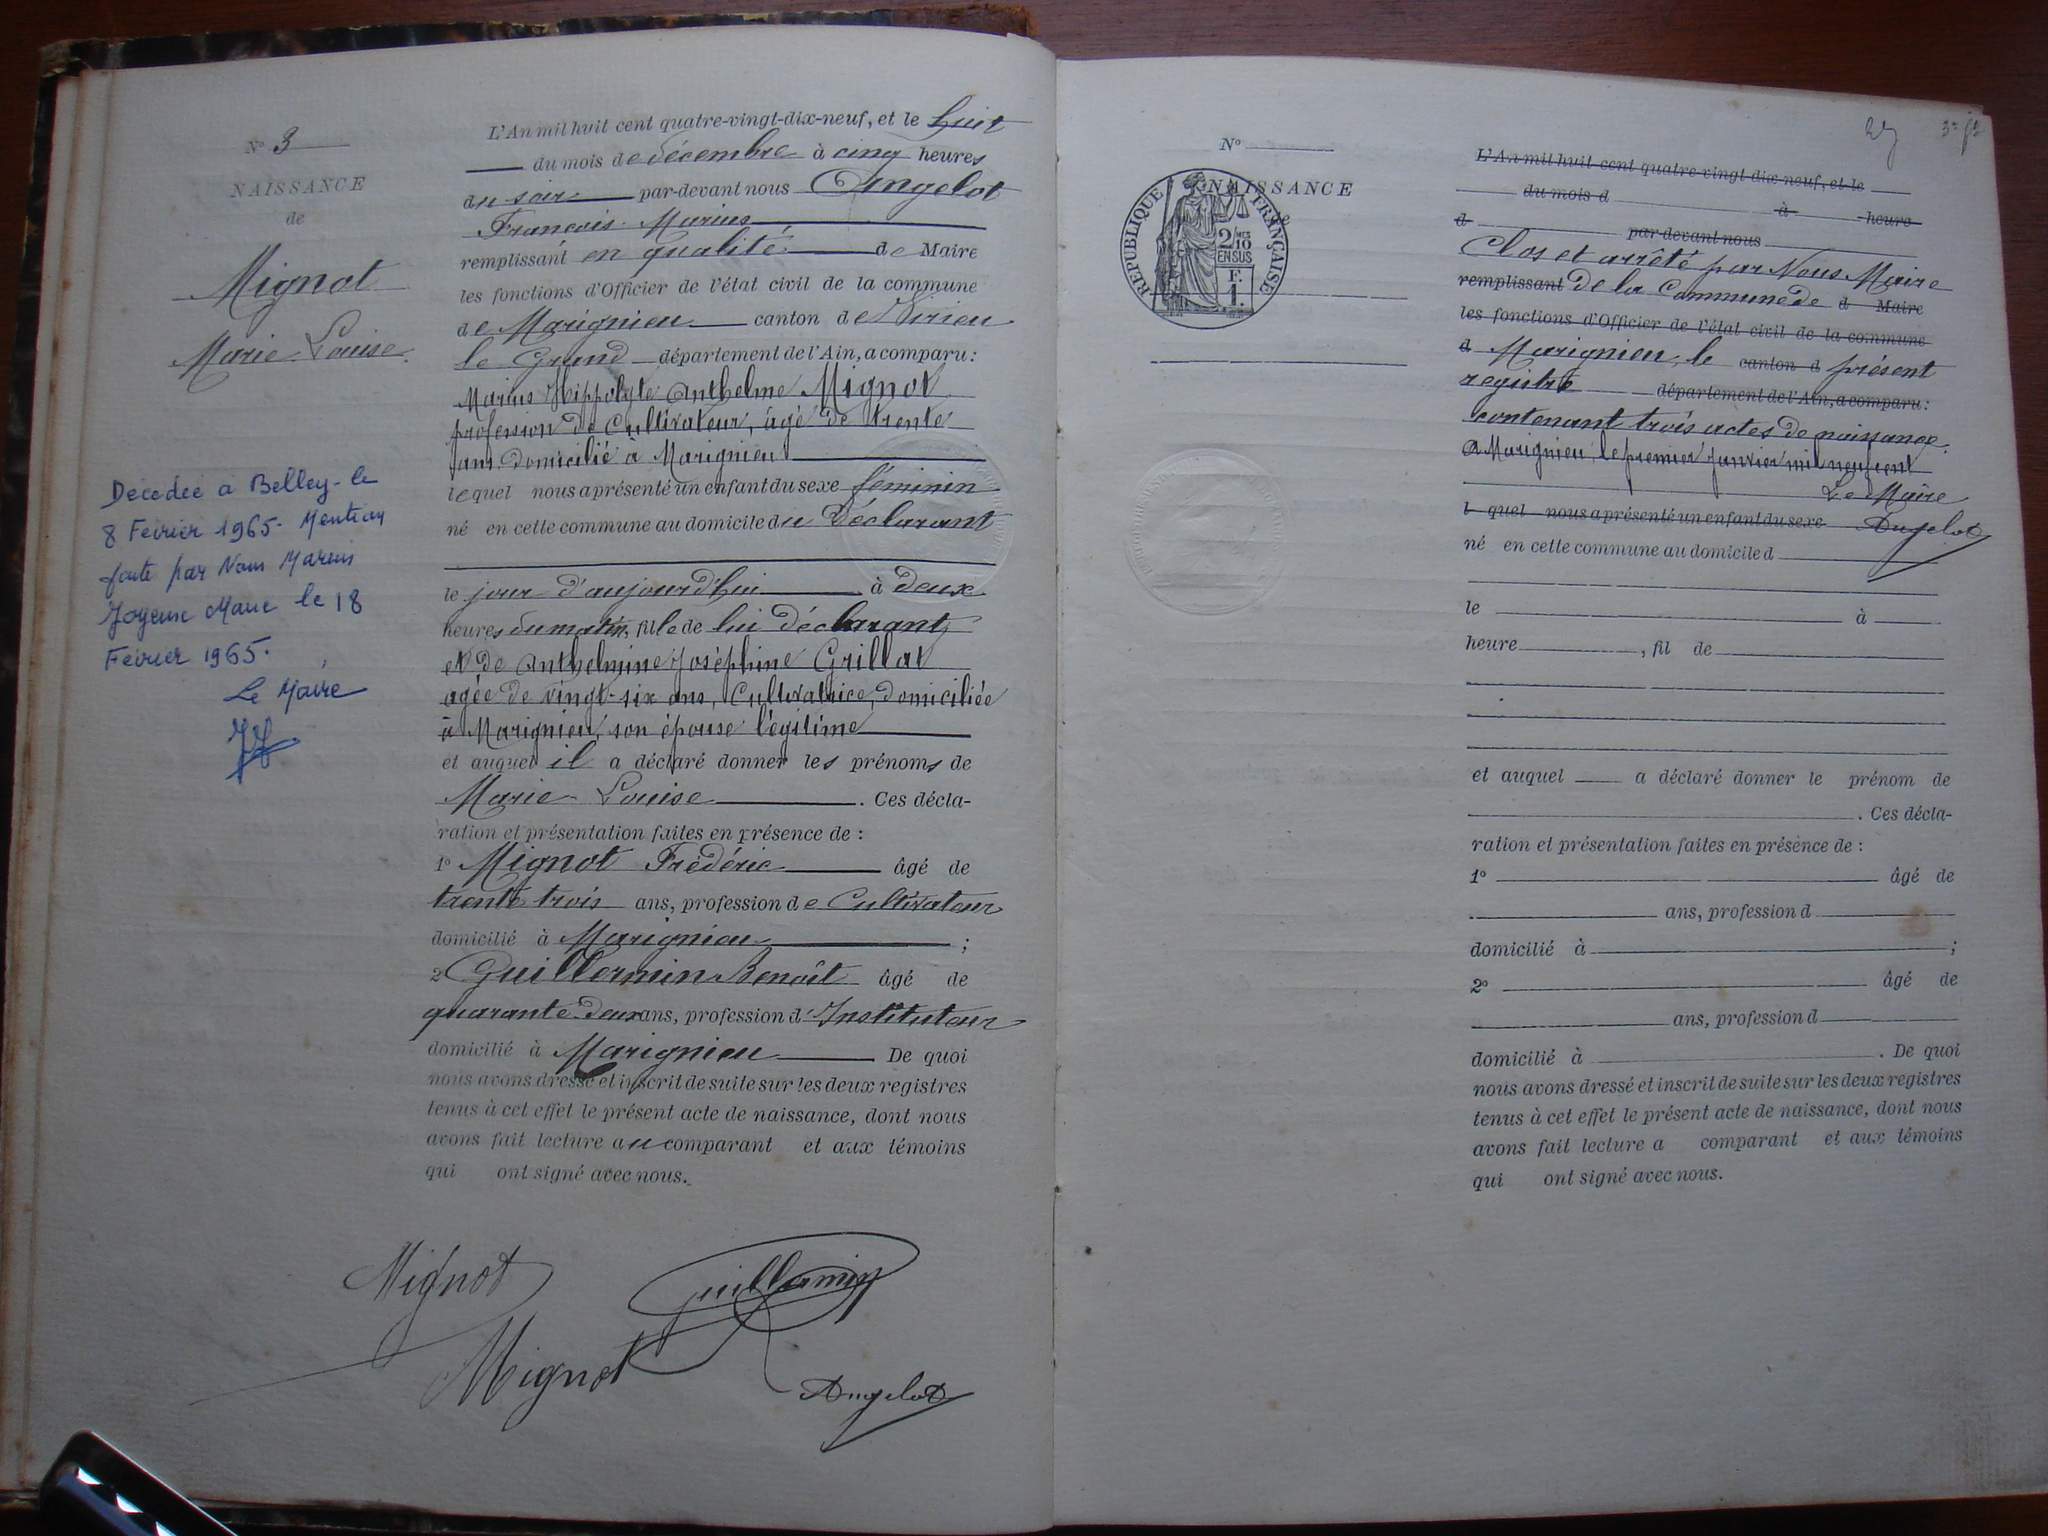 N° 3
NAISSANCE
de
Mignot
Marie Louise
Décédée à Belley le
8 Février 1965. Mention
faite par Nous Marius
Joyeux Maire le 18
Février 1965.
Le Maire
L'An mil huit cent quatre-vingt-dix-neuf, et le huit
du mois de décembre à cinq heures
du soir par-devant nous Angelot
François Marius
remplissant en qualité de Maire
les fonctions d'Officier de l'état civil de la commune
de Marignieu canton de Virieu
le Grand département de l'Ain, a comparu :
Marius Hippolyte Anthelme Mignot
profession de Cultivateur, âgé de trente
ans domicilié à Marignieu
lequel nous a présenté un enfant du sexe féminin
né en cette commune au domicile du Déclarant
le jour d'aujourd'hui à deux
heures du matin, fille de lui déclarant
et de Anthelmine Joséphine Grillat
agée de vingt-six ans, Cultivatrice, domiciliée
à Marignieu, son épouse légitime
et auquel il a déclaré donner les prénoms de
Marie Louise . Ces décla-
ration et présentation faites en présence de :
1° Mignot Frédéric âgé de
trente trois ans, profession de Cultivateur
domicilié à Marignieu ;
2° Guillermin Benoît âgé de
quarante deux ans, profession d'Instituteur
domicilié à Marignieu De quoi
nous avons dressé et inscrit de suite sur les deux registres
tenus à cet effet le présent acte de naissance, dont nous
avons fait lecture au comparant et aux témoins
qui ont signé avec nous.
Mignot
Guillermin
Mignot
Angelot
N°
NAISSANCE
RÉPUBLIQUE FRANÇAISE
2/10 MES
EN SUS
F.
1.
L'An mil huit cent quatre-vingt-dix-neuf, et le
du mois d à heure
d par-devant nous
Clos et arrêté par Nous Maire
remplissant de la Commune de d Maire
les fonctions d'Officier de l'état civil de la commune
d Marignieu, le canton d présent
registre département de l'Ain, a comparu :
contenant trois actes de naissance.
A Marignieu, le premier Janvier mil neuf cent
Le Maire
l quel nous a présenté un enfant du sexe Angelot
né en cette commune au domicile d
le à
heure , fil de
et auquel a déclaré donner le prénom de
. Ces décla-
ration et présentation faites en présence de :
1° âgé de
ans, profession d
domicilié à ;
2° âgé de
ans, profession d
domicilié à . De quoi
nous avons dressé et inscrit de suite sur les deux registres
tenus à cet effet le présent acte de naissance, dont nous
avons fait lecture a comparant et aux témoins
qui ont signé avec nous.